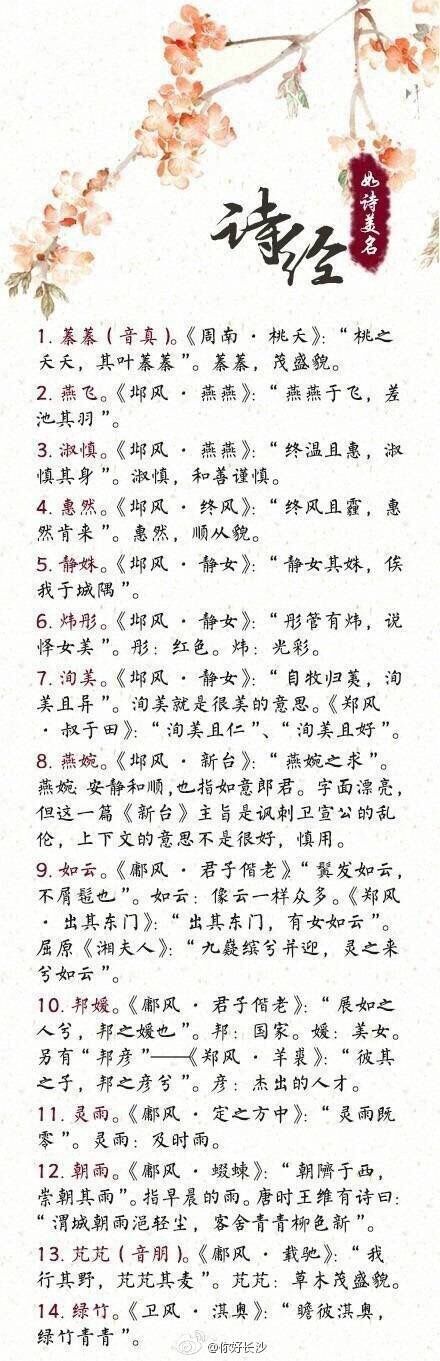 诗经
如诗美名
1. 蓁蓁(音真)。《周南·桃夭》:“桃之
夭夭,其叶蓁蓁”。蓁蓁,茂盛貌。
2. 燕飞。《邶风·燕燕》:“燕燕于飞,差
池其羽”。
3. 淑慎。《邶风·燕燕》:“终温且惠,淑
慎其身”。淑慎,和善谨慎。
4. 惠然。《邶风·终风》:“终风且霾,惠
然肯来”。惠然,顺从貌。
5. 静姝。《邶风·静女》:“静女其姝,俟
我于城隅”。
6. 炜彤。《邶风·静女》:“彤管有炜,说
怿女美”。彤:红色。炜:光彩。
7. 洵美。《邶风·静女》:“自牧归荑,洵
美且异”。洵美就是很美的意思。《郑风
·叔于田》:“洵美且仁”、“洵美且好”。
8. 燕婉。《邶风·新台》:“燕婉之求”。
燕婉:安静和顺,也指如意郎君。字面漂亮,
但这一篇《新台》主旨是讽刺卫宣公的乱
伦,上下文的意思不是很好,慎用。
9. 如云。《鄘风·君子偕老》“鬒发如云,
不屑髢也”。如云:像云一样众多。《郑风
·出其东门》:“出其东门,有女如云”。
屈原《湘夫人》:“九嶷缤兮并迎,灵之来
兮如云”。
10. 邦媛。《鄘风·君子偕老》:“展如之
人兮,邦之媛也”。邦:国家。媛:美女。
另有“邦彦”——《郑风·羊裘》:“彼其
之子,邦之彦兮”。彦:杰出的人才。
11. 灵雨。《鄘风·定之方中》:“灵雨既
零”。灵雨:及时雨。
12. 朝雨。《鄘风·蝃蝀》:“朝隮于西,
崇朝其雨”。指早晨的雨。唐时王维有诗曰:
“渭城朝雨浥轻尘,客舍青青柳色新”。
13. 芃芃(音朋)。《鄘风·载驰》:“我
行其野,芃芃其麦”。芃芃:草木茂盛貌。
14. 绿竹。《卫风·淇奥》:“瞻彼淇奥,
绿竹青青”。
@你好长沙